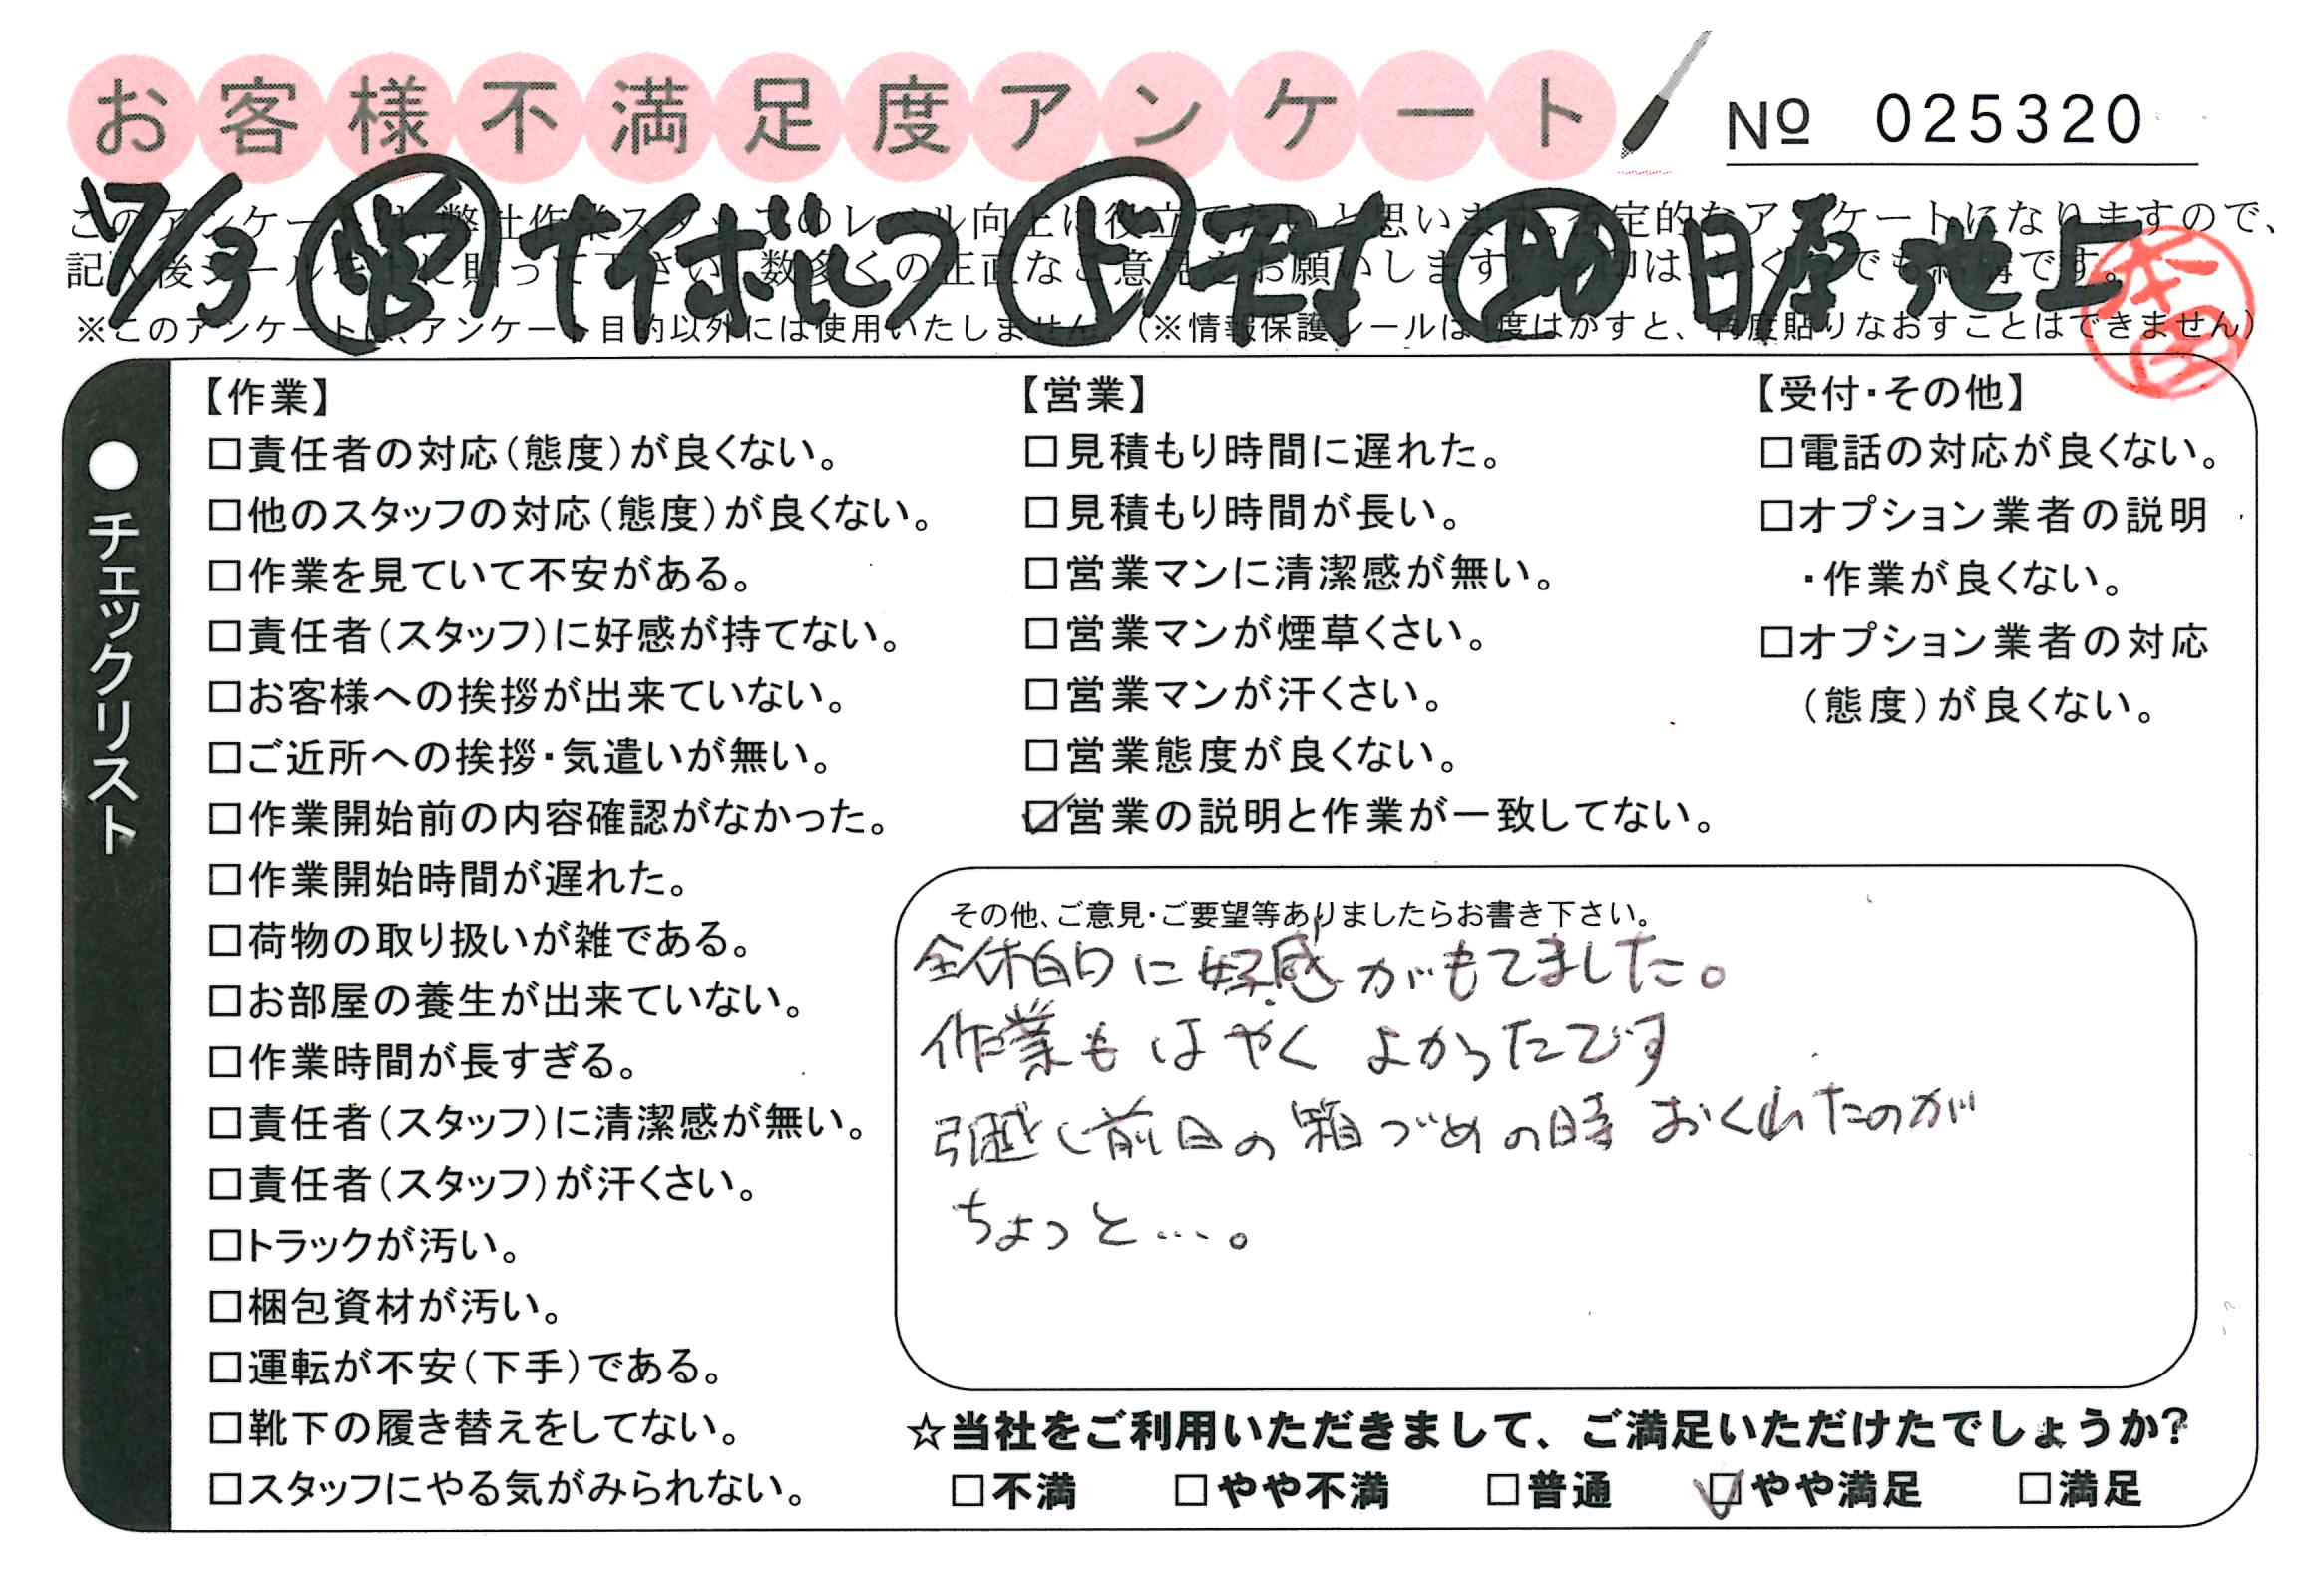 お客様不満足度アンケート
№ 025320
このアンケートは、弊社作業スタッフのレベル向上に役立てたいと思います。否定的なアンケートになりますので、
記入後シールを上に貼って下さい。数多くの正直なご意見をお願いします。
※このアンケートは、アンケート目的以外には使用いたしません。(※情報保護シールは1度はがすと、再度貼りなおすことはできません)
17/3 営 ナイボルツ 助 日原 池上
●チェックリスト
【作業】
□責任者の対応(態度)が良くない。
□他のスタッフの対応(態度)が良くない。
□作業を見ていて不安がある。
□責任者(スタッフ)に好感が持てない。
□お客様への挨拶が出来ていない。
□ご近所への挨拶・気遣いが無い。
□作業開始前の内容確認がなかった。
□作業開始時間が遅れた。
□荷物の取り扱いが雑である。
□お部屋の養生が出来ていない。
□作業時間が長すぎる。
□責任者(スタッフ)に清潔感が無い。
□責任者(スタッフ)が汗くさい。
□トラックが汚い。
□梱包資材が汚い。
□運転が不安(下手)である。
□靴下の履き替えをしてない。
□スタッフにやる気がみられない。
【営業】
□見積もり時間に遅れた。
□見積もり時間が長い。
□営業マンに清潔感が無い。
□営業マンが煙草くさい。
□営業マンが汗くさい。
□営業態度が良くない。
☑営業の説明と作業が一致してない。
【受付・その他】
□電話の対応が良くない。
□オプション業者の説明
・作業が良くない。
□オプション業者の対応
(態度)が良くない。
その他、ご意見・ご要望等ありましたらお書き下さい。
全体的に好感がもてました。
作業もはやくよかったです
引越し前日の箱づめの時おくれたのが
ちょっと…。
☆当社をご利用いただきまして、ご満足いただけたでしょうか?
□不満 □やや不満 □普通 ☑やや満足 □満足